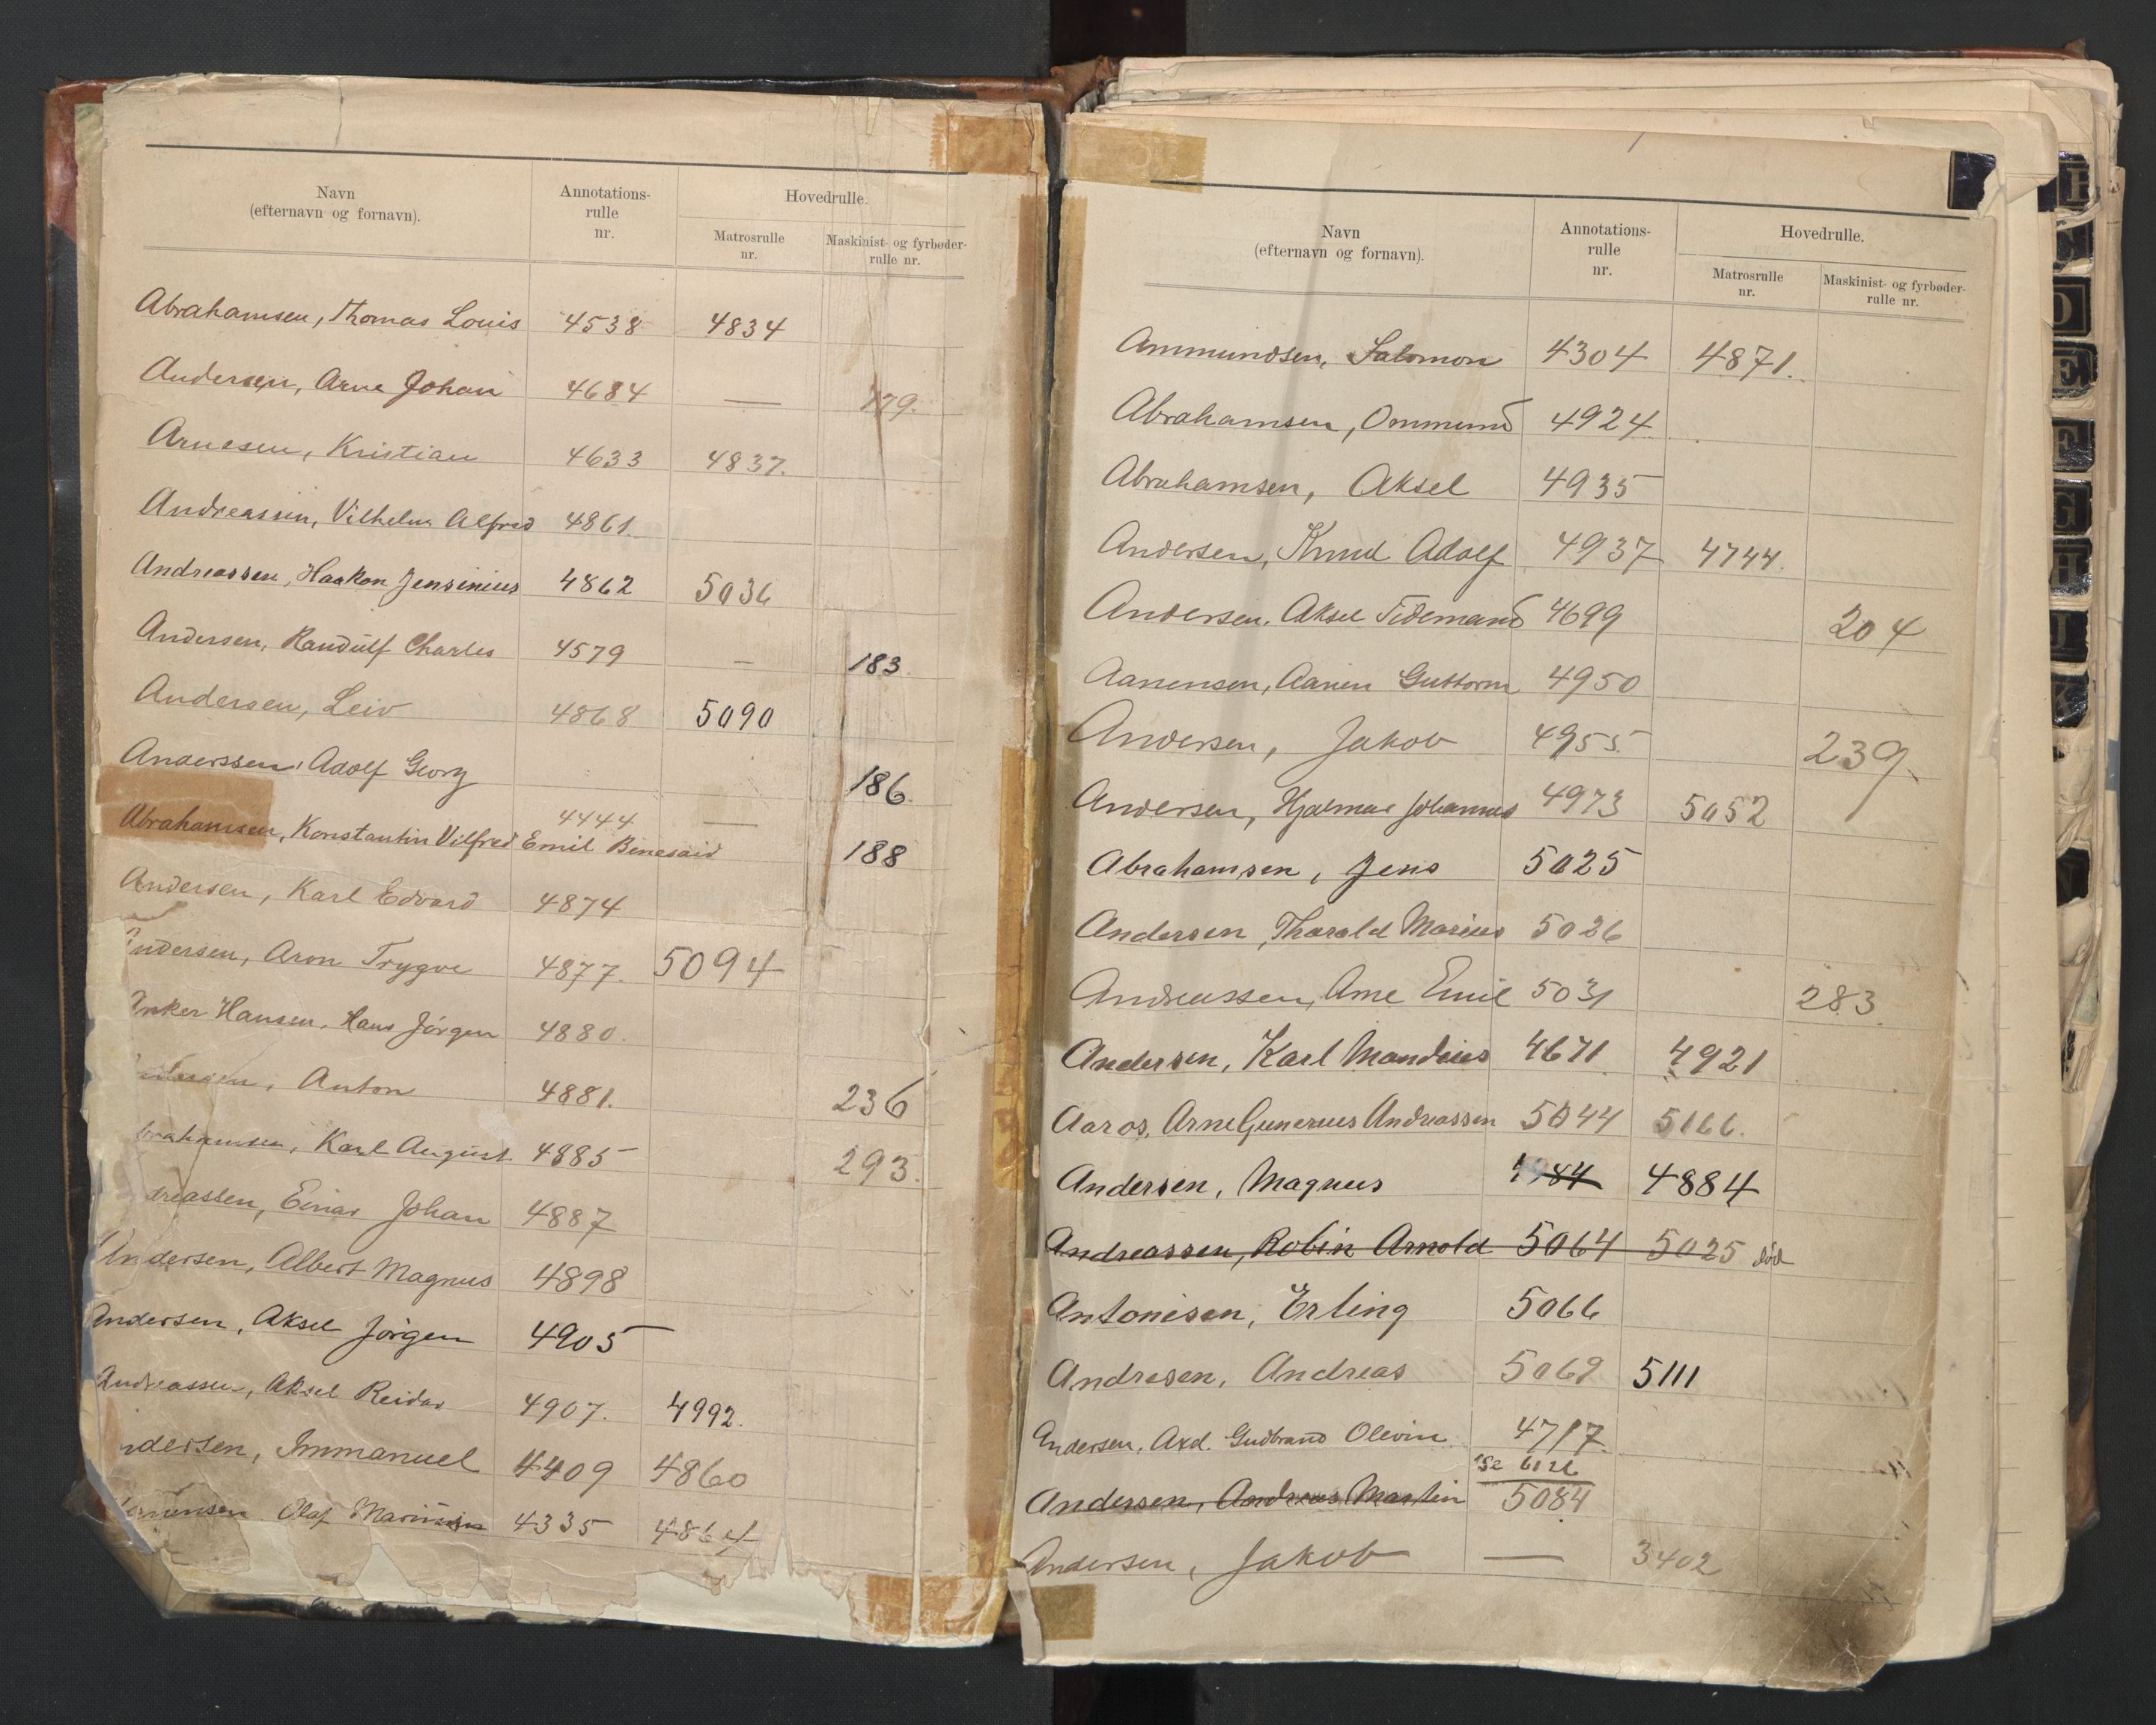 Navn
(efternavn og fornavn).
Annotations-
rulle
nr.
Hovedrulle.
Matrosrulle
nr.
Maskinist- og fyrbøder-
rulle nr.
Abrahamsen, Thomas Louis 4538 4834
Andersen, Arne Johan 4684 — 179.
Arnesen, Kristian 4633 4837.
Andreassen, Vilhelm Alfred 4861.
Andreassen, Haakon Jensinius 4862 5036
Andersen, Randulf Charles 4579 — 183.
Andersen, Leiv 4868 5090
Anderssen, Adolf Georg 186.
4444 —
Abrahamsen, Konstantin Vilfred Emil Benesaid 188
Andersen, Karl Edvard 4874
Andersen, Aron Trygve 4877. 5094
Anker Hansen, Hans Jörgen 4880.
Anton 4881. 236
brahamsen, Karl August. 4885 293.
dreassen, Einar Johan 4887
Andersen, Albert Magnus 4898
Andersen, Aksel Jörgen 4905
Andreassen, Aksel Reidar 4907. 4992.
dersen, Immanuel 4409 4860
Olaf 4335 4864
Navn
(efternavn og fornavn).
Annotations-
rulle
nr.
Hovedrulle.
Matrosrulle
nr.
Maskinist- og fyrbøder-
rulle nr.
Ammundsen, Salomon 4304 4871.
Abrahamsen, Ommund 4924
Abrahamsen, Aksel 4935
Andersen, Knud Adolf 4937 4744.
Andersen, Aksel Tidemand 4699 204
Aanensen, Aanen Guttorm 4950
Andersen, Jakob 4955. 239.
Andersen, Hjalmar Johannes 4973 5052
Abrahamsen, Jens 5025
Andersen, Tharald Marius 5026
Andreassen, Arne Emil 5031 283.
Andersen, Karl Mandius 4671 4921
Aaros, Arne Gunerius Andreassen 5044 5166.
Andersen, Magnus 4884
Andreassen, Robin Arnold 5064 5025 död
Antonisen, Erling 5066
Andresen, Andreas 5069 5111
Andersen, Axd. Gudbrand Olevin 4717.
se 6126
Andersen, Andreas Martin 5084
Andersen, Jakob — 3402